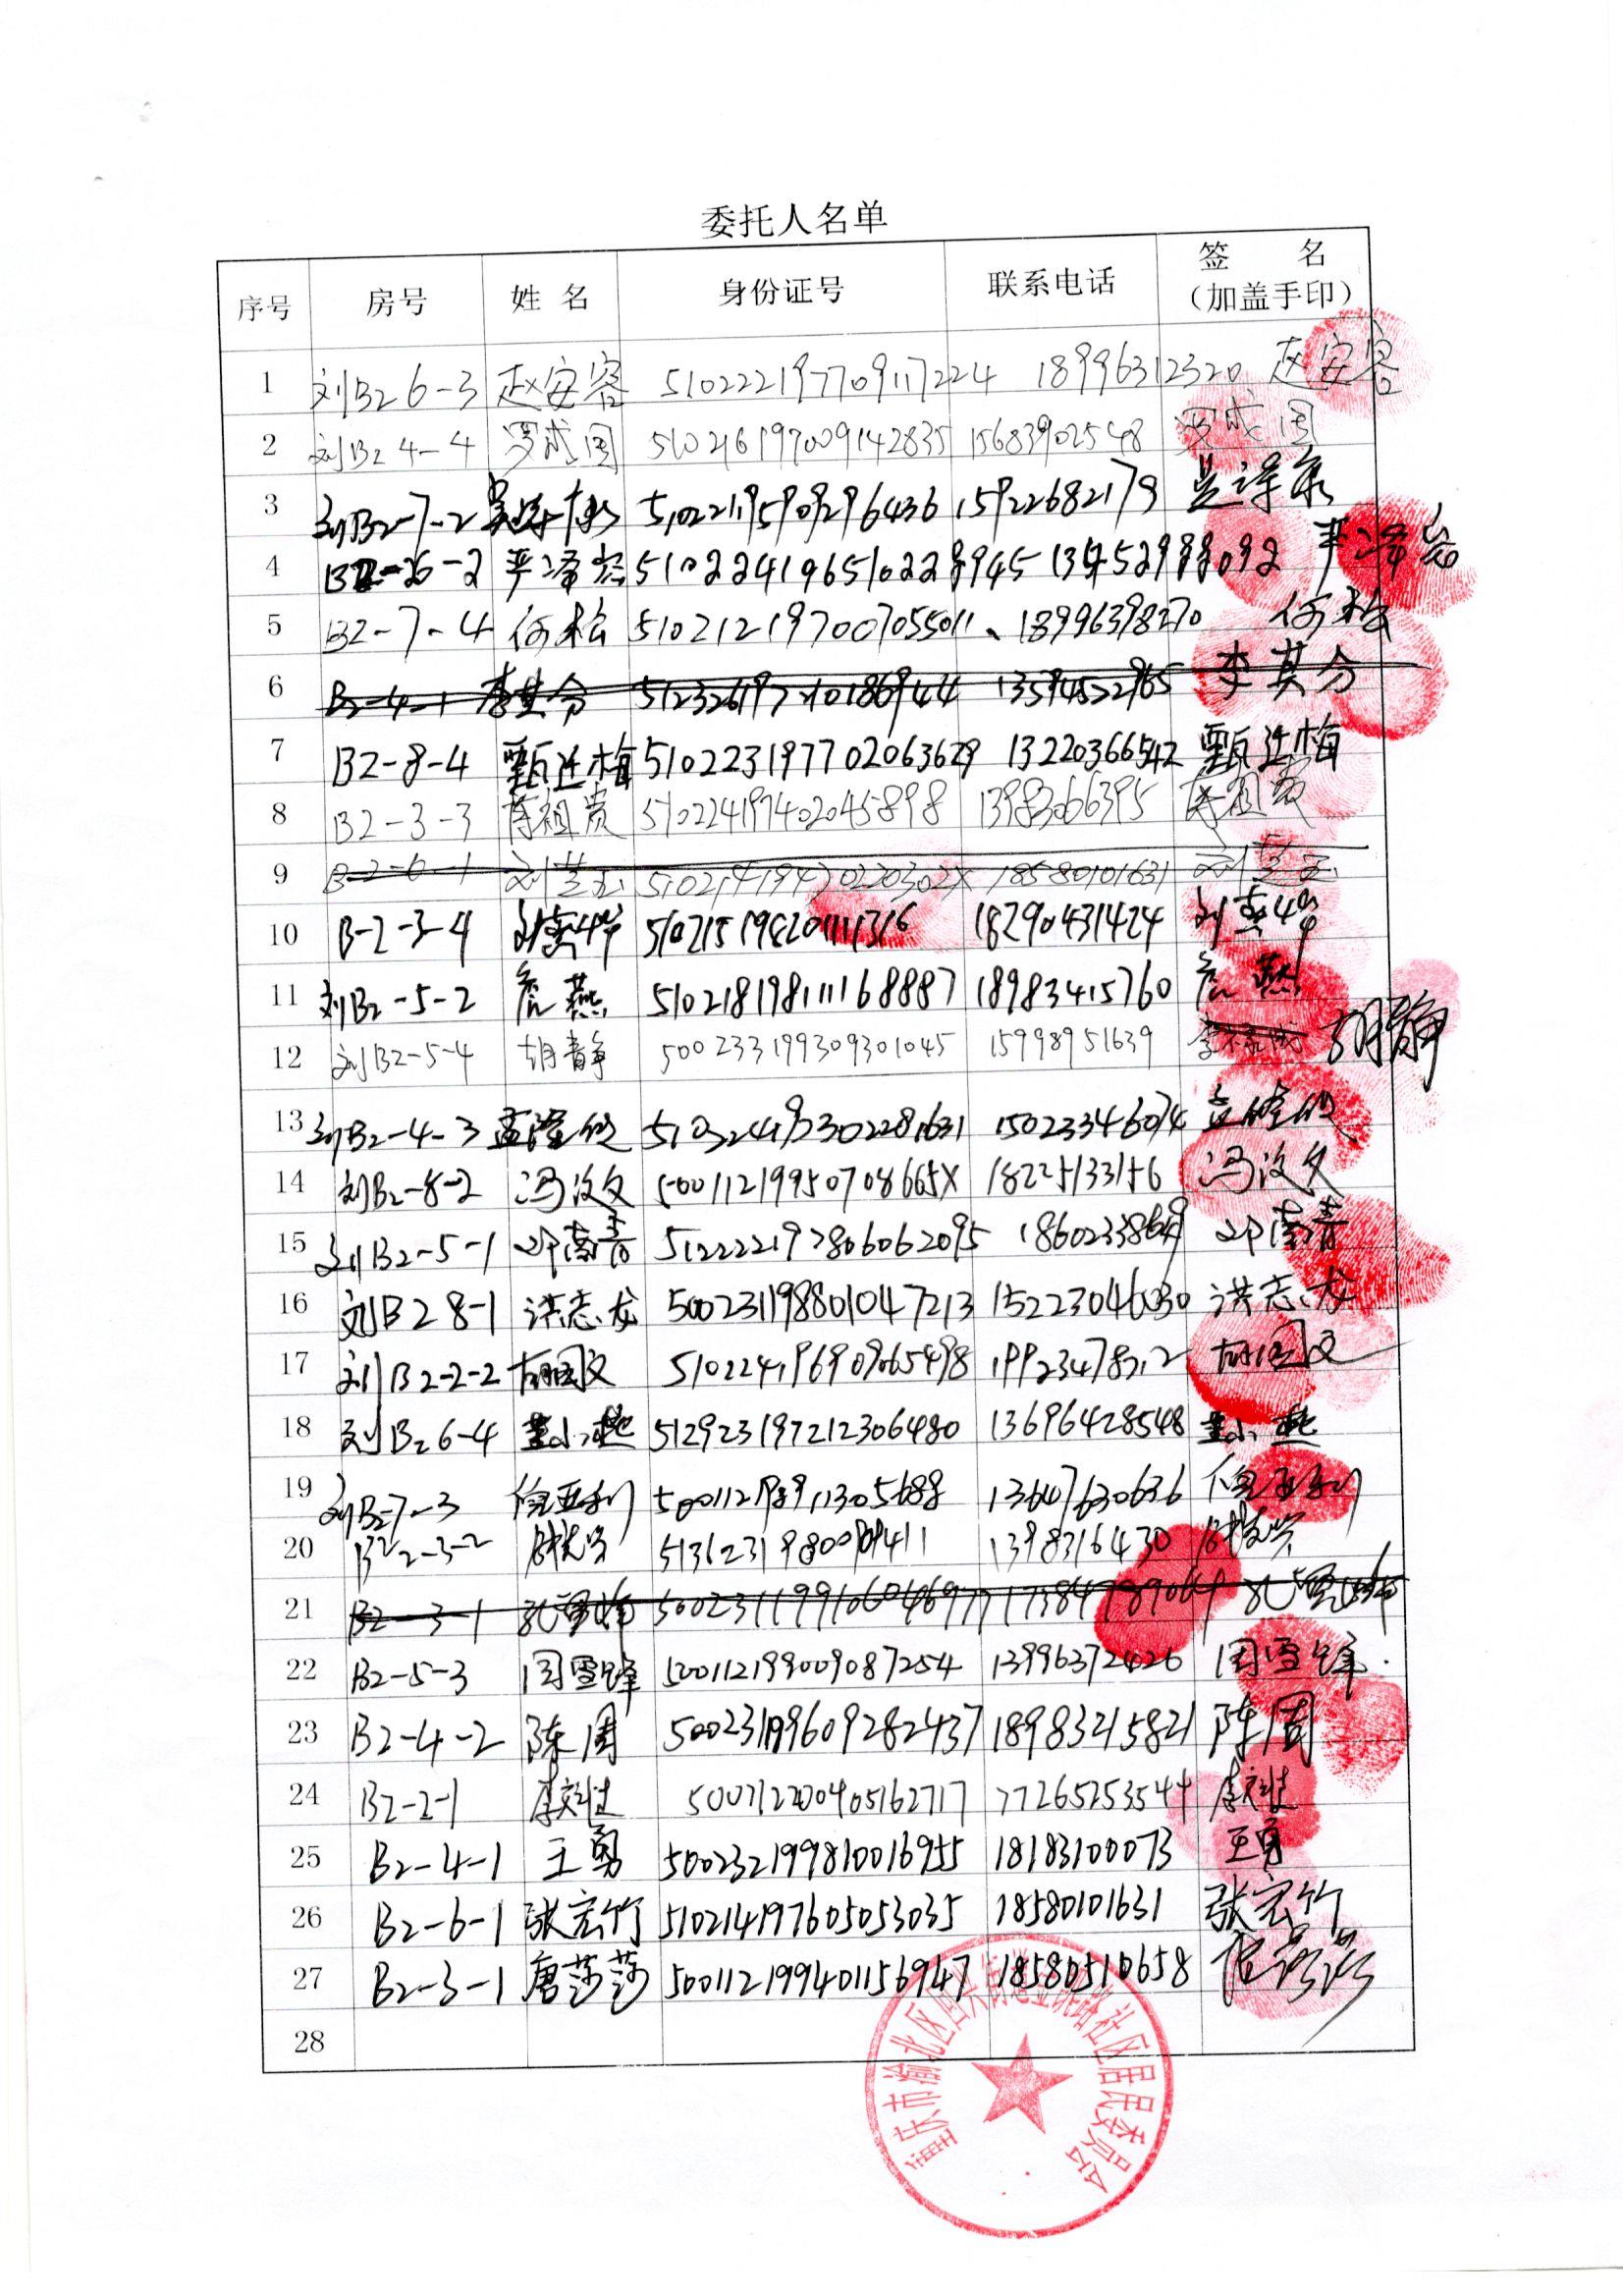 委托人名单
序号 房号 姓名 身份证号 联系电话 签名（加盖手印）
1 刘B2 6-3 赵安容 510222197709117224 18996312320 赵安容
2 刘B2 4-4 罗成国 510216197009142835 15683902548 罗成国
3 刘B2-7-2 15922682179
4 B2-26-2 严泽容 510224196510228945 严泽容
5 B2-7-4 何松 510212197007055011、18996398270 何松
6 B2-4-1 李其分 13594532965 李其分
7 B2-8-4 甄廷梅 510223197702063629 13220366542 甄廷梅
8 B2-3-3 陈祖贵 510224197402045898 13983066395 陈祖贵
9 B-2-6-1 18580101631
10 B-2-3-4 18290431424
11 刘B2-5-2 詹燕 510218198111168887 18983415760 詹燕
12 刘B2-5-4 胡静 500233199309301045 15998951639 胡静
13 刘B2-4-3 15023346074
14 刘B2-8-2 冯汝文 50011219950708665X 18225133156 冯汝文
15 刘B2-5-1 邓南青 512222197806062095 邓南青
16 刘B2 8-1 洪志龙 500231198801047213 15223046030 洪志龙
17 刘B2-2-2 胡国文 510224196909065498 19923478312 胡国文
18 刘B2 6-4 董小燕 512923197212306480 13696428548 董小燕
19 刘B2-7-3 徐亚利 13647630636 徐亚利
20 B2 2-3-2 1398316430
21 B2-3-1
22 B2-5-3 周雪峰 500112199009087254 13996372426 周雪峰
23 B2-4-2 陈周 500231199609282437 18983215821 陈周
24 B2-2-1 500712200405162717 77265253544
25 B2-4-1 王勇 500232199810016955 18183100073 王勇
26 B2-6-1 张宏竹 510214197605053035 18580101631 张宏竹
27 B2-3-1 唐莎莎 500112199401156947 18580510658
28
重庆市渝北区 社区居民委员会